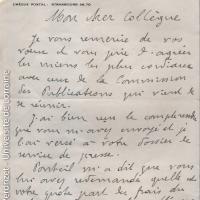 CHÈQUE POSTAL : STRASBOURG 55.70
Mon cher Collègue
Je vous remercie de vos
voeux et vous prie d'agréer
les miens les plus cordiaux
avec ceux de la Commission
des Publications qui vient de
se réunir.
J'ai bien eu le complément
que vous m'avez envoyé et je
l'ai versé à votre dossier de
service de presse.
m'a dit que vous
lui avez redemandé quelle est
votre quote part de frais du
Université de Lorraine